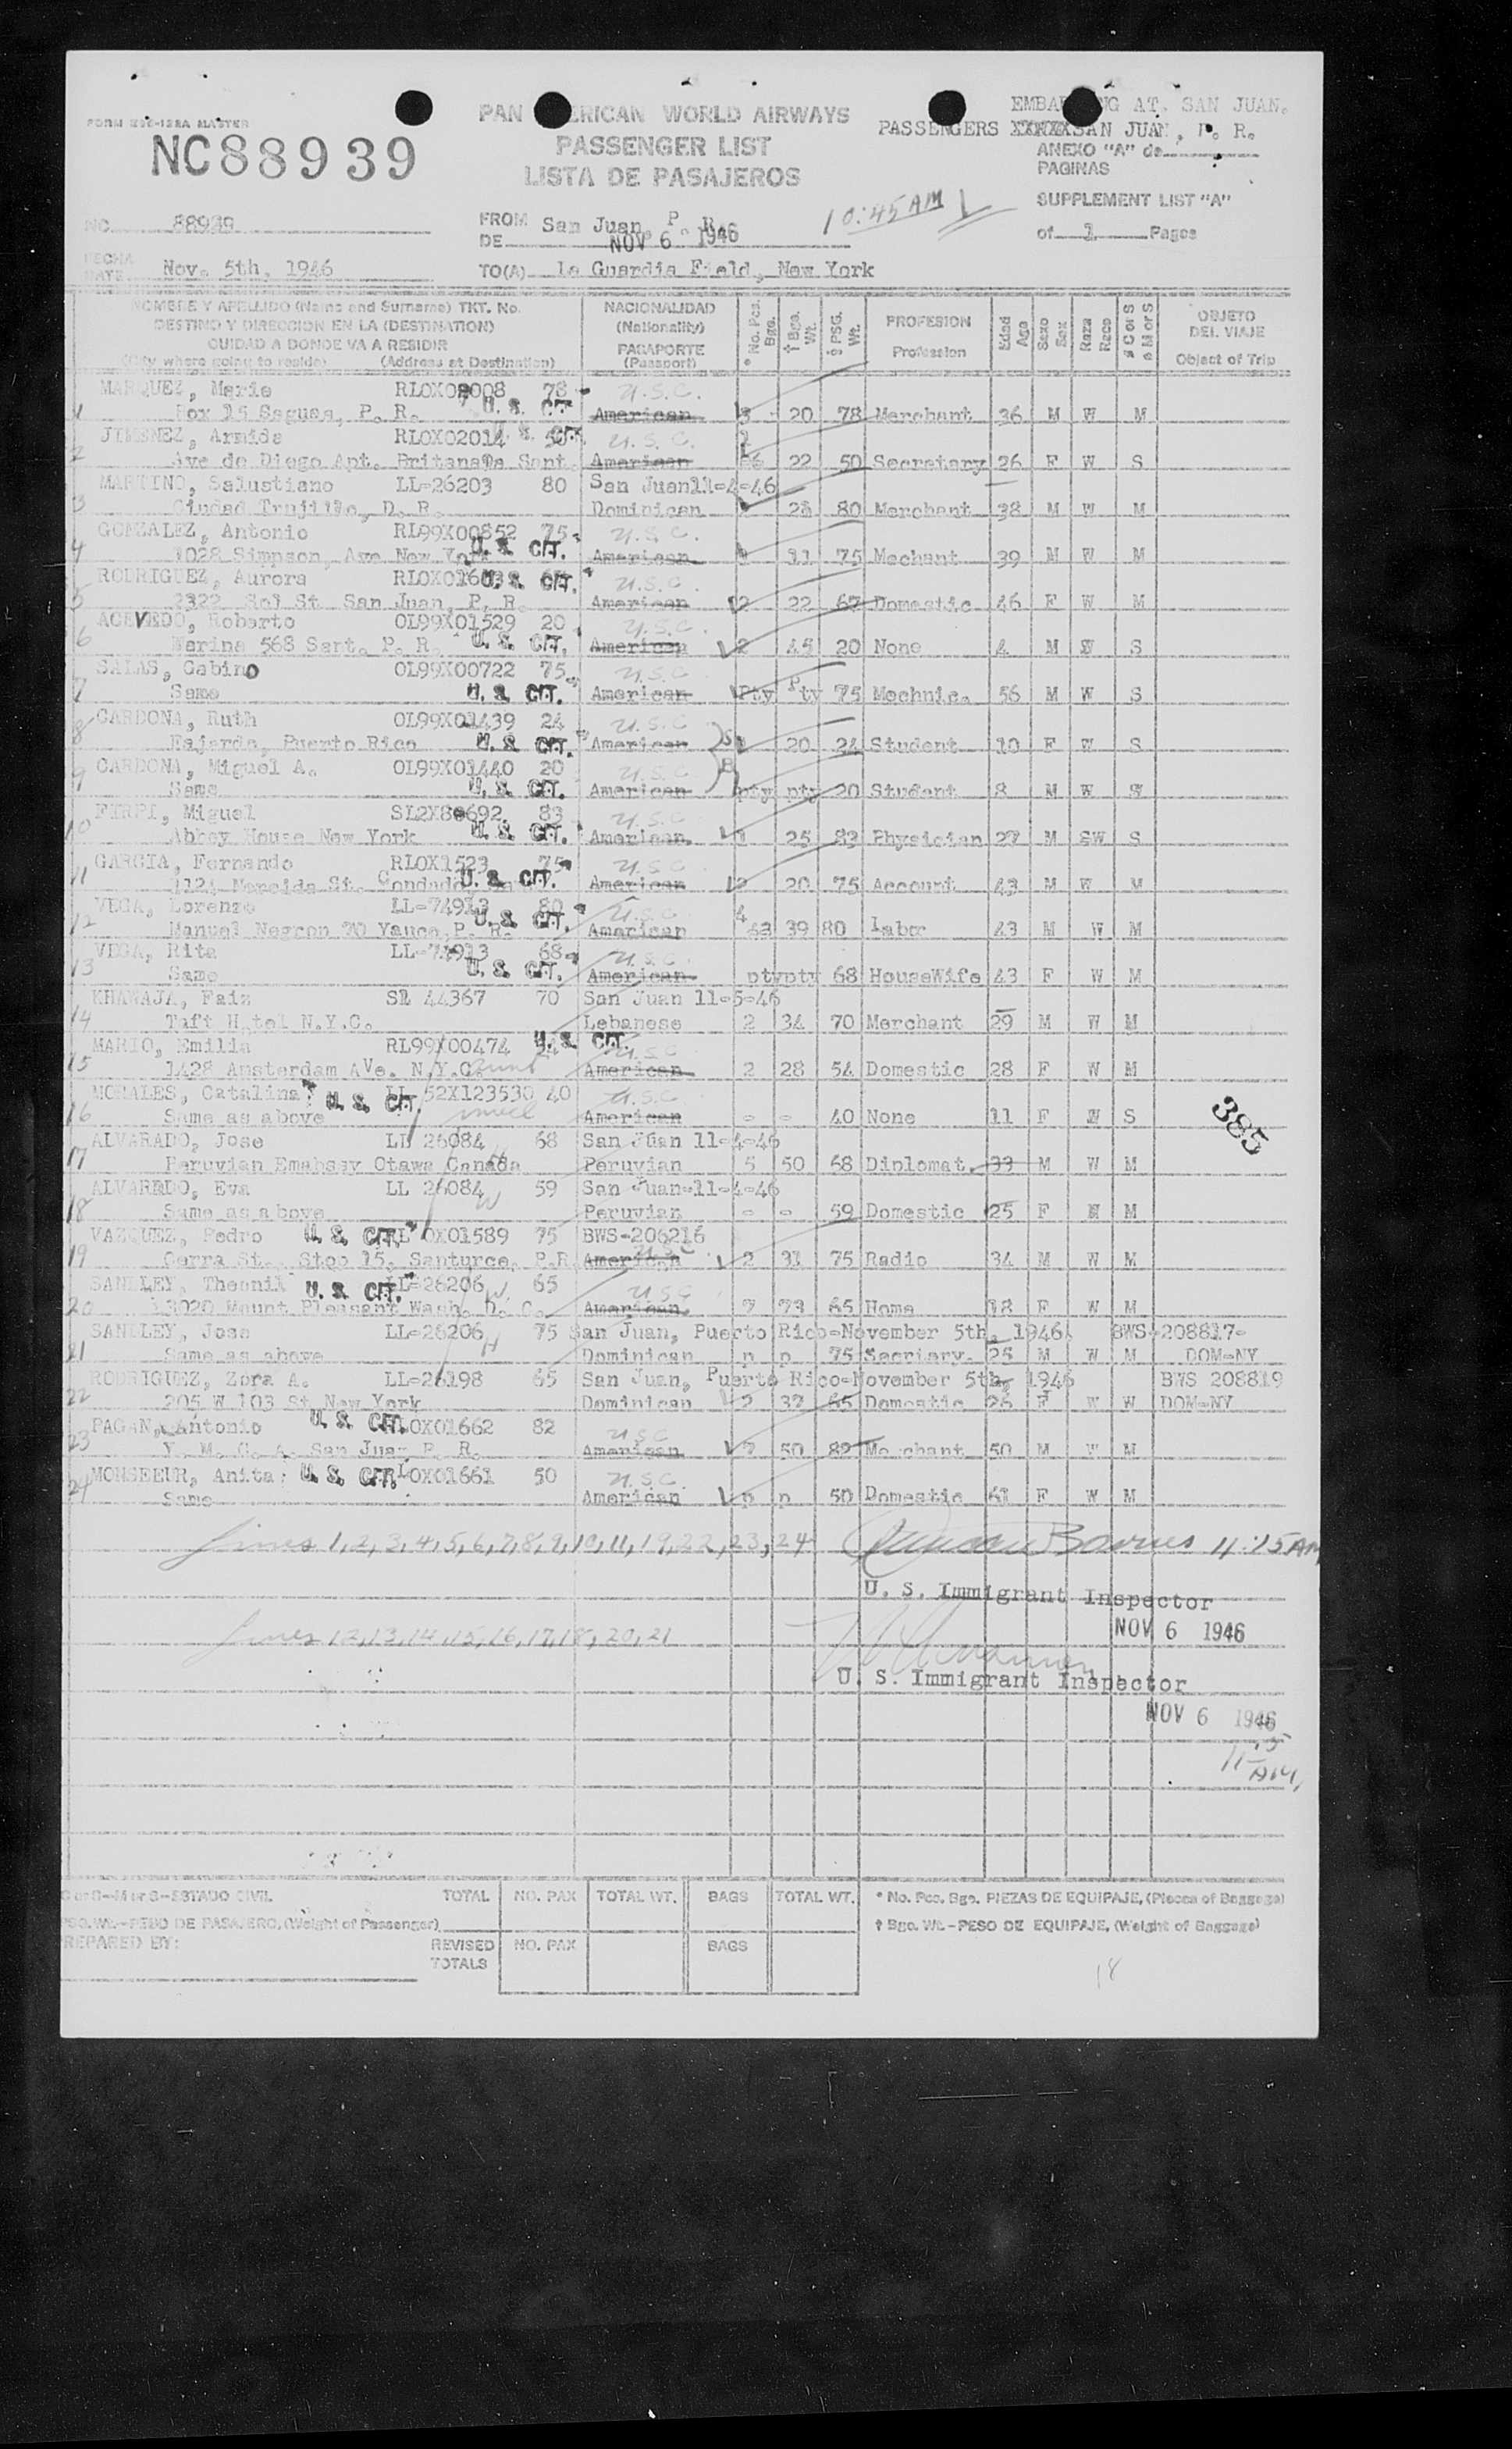 FORM MASTER
NC88939
PAN AMERICAN WORLD AIRWAYS
PASSENGER LIST
LISTA DE PASAJEROS
EMBARKING AT. SAN JUAN.
PASSENGERS XXXXX SAN JUAN, P. R.
ANEXO "A" de
PAGINAS
SUPPLEMENT LIST "A"
of 1 Pages
NC 88939
FROM San Juan, P. R.
DE NOV 6 - 1946
10:45 AM
FECHA
DATE Nov. 5th, 1946
TO(A) La Guardia Field, New York
NOMBRE Y APELLIDO (Name and Surname) TKT. No.
DESTINO Y DIRECCION EN LA (DESTINATION)
CUIDAD A DONDE VA A RESIDIR
(City where going to reside) (Address at Destination)
NACIONALIDAD
(Nationality)
PASAPORTE
(Passport)
* No. Pcs. Bgo.
† Bgo. Wt.
§ PSG. Wt.
PROFESION
Profession
Edad
Age
Sexo
Sex
Raza
Race
C or S
M or S
OBJETO
DEL VIAJE
Object of Trip
MARQUEZ, Mario RLOX02008 78 U.S.C.
1 Box 15 Saguas, P. R. U. S. CIT. American 3 20 78 Merchant 36 M W M
JIMENEZ, Armida RLOX02014 50 U.S.C. 2
2 Ave de Diego Apt. Britana Sant. American 22 50 Secretary 26 F W S
MARTINO, Salustiano LL-26203 80 San Juan 11-4-46
3 Ciudad Trujillo, D. R. Dominican 80 Merchant 38 M W M
GONZALEZ, Antonio RL99X00852 75 U.S.C.
4 1028 Simpson, Ave New York U. S. CIT. American 11 75 Mechant 39 M W M
RODRIGUEZ, Aurora U. S. CIT. U.S.C.
5 2322 Sol St San Juan, P. R. American 2 22 67 Domestic 46 F W M
ACEVEDO, Roberto OL99X01529 20 U.S.C.
6 Marina 568 Sant. P. R. U. S. CIT. American 2 45 20 None 4 M W S
SALAS, Gabino OL99X00722 75 U.S.C.
7 Same U. S. CIT. American Pty Pty 75 Mechnic. 56 M W S
CARDONA, Ruth OL99X01439 24 U.S.C
8 Fajardo, Puerto Rico U. S. CIT. American 1 20 24 Student 10 F W S
CARDONA, Miguel A. OL99X01440 20 U.S.C
9 Same U. S. CIT. American pty pty 20 Student 8 M W
FIRPI, Miguel 83 U.S.C
10 Abbey House New York U. S. CIT. American 1 25 83 Physician 27 M W S
GARCIA, Fernando RLOX1523 75 U.S.C
11 Condado U. S. CIT. American 2 20 75 Account 43 M W M
VEGA, Lorenzo LL-74913 80 U.S.C 4
12 Manuel Negron 70 Yauco, P. R. U. S. CIT. American 39 80 Labor 43 M W M
VEGA, Rita LL-74913 68 U.S.C
13 Same U. S. CIT. American pty pty 68 HouseWife 43 F W M
KHAWAJA, Faiz Sl 44367 70 San Juan 11-5-46
14 Taft Hotel N.Y.C. Lebanese 2 34 70 Merchant 29 M W M
MARIO, Emilia RL99X00474 U. S. CIT. U.S.C
15 1428 Amsterdam Ave. N.Y.C. aunt American 2 28 54 Domestic 28 F W M
MORALES, Catalina U. S. CIT. LL 52X123530 40 U.S.C
16 Same as above niece American - - 40 None 11 F W S
385
ALVARADO, Jose LL 26084 68 San Juan 11-4-46
17 Peruvian Emabssy Otawa Canada H Peruvian 5 50 68 Diplomat. 33 M W M
ALVAREDO, Eva LL 26084 59 San Juan-11-4-46
18 Same as above W Peruvian - - 59 Domestic 25 F W M
VAZQUEZ, Pedro U. S. CIT. RLOX01589 75 BWS-206216
19 Cerra St. Stop 15, Santurce, P.R. American U.S.C 2 31 75 Radio 34 M W M
SANLLEY, U. S. CIT. LL-26206 W 65 U.S.C
20 3020 Mount Pleasant Wash. D. C. American 7 73 65 Home 18 F W M
SANLLEY, Jose LL-26206 H 75 San Juan, Puerto Rico-November 5th, 1946. BWS-208817-
21 Same as above Dominican p p 75 Secriary. 25 M W M DOM-NY
RODRIGUEZ, Zora A. LL-26198 65 San Juan, Puerto Rico-November 5th, 1946 BWS 208819
22 205 W 103 St New York Dominican 2 37 65 Domestic 26 F W W DOM-NY
PAGAN, Antonio U. S. CIT. RLOX01662 82 U S C
23 Y. M. C. A. San Juan P. R. American 50 82 Merchant 50 M W M
MONSEEUR, Anita U. S. CIT. RLOX01661 50 U.S.C.
24 Same American p p 50 Domestic 61 F W M
Lines 1,2,3,4,5,6,7,8,9,10,11,19,22,23,24 11:15 AM
U. S. Immigrant Inspector
NOV 6 1946
Lines 12,13,14,15,16,17,18,20,21
U. S. Immigrant Inspector
NOV 6 1946
11 15 AM
C or S-M or S-ESTADO CIVIL
PSG. Wt.-PESO DE PASAJERO, (Weight of Passenger)
PREPARED BY:
TOTAL NO. PAX TOTAL WT. BAGS TOTAL WT.
REVISED TOTALS NO. PAX BAGS
* No. Pcs. Bgo. PIEZAS DE EQUIPAJE, (Pieces of Baggage)
† Bgo. Wt. - PESO DE EQUIPAJE, (Weight of Baggage)
18